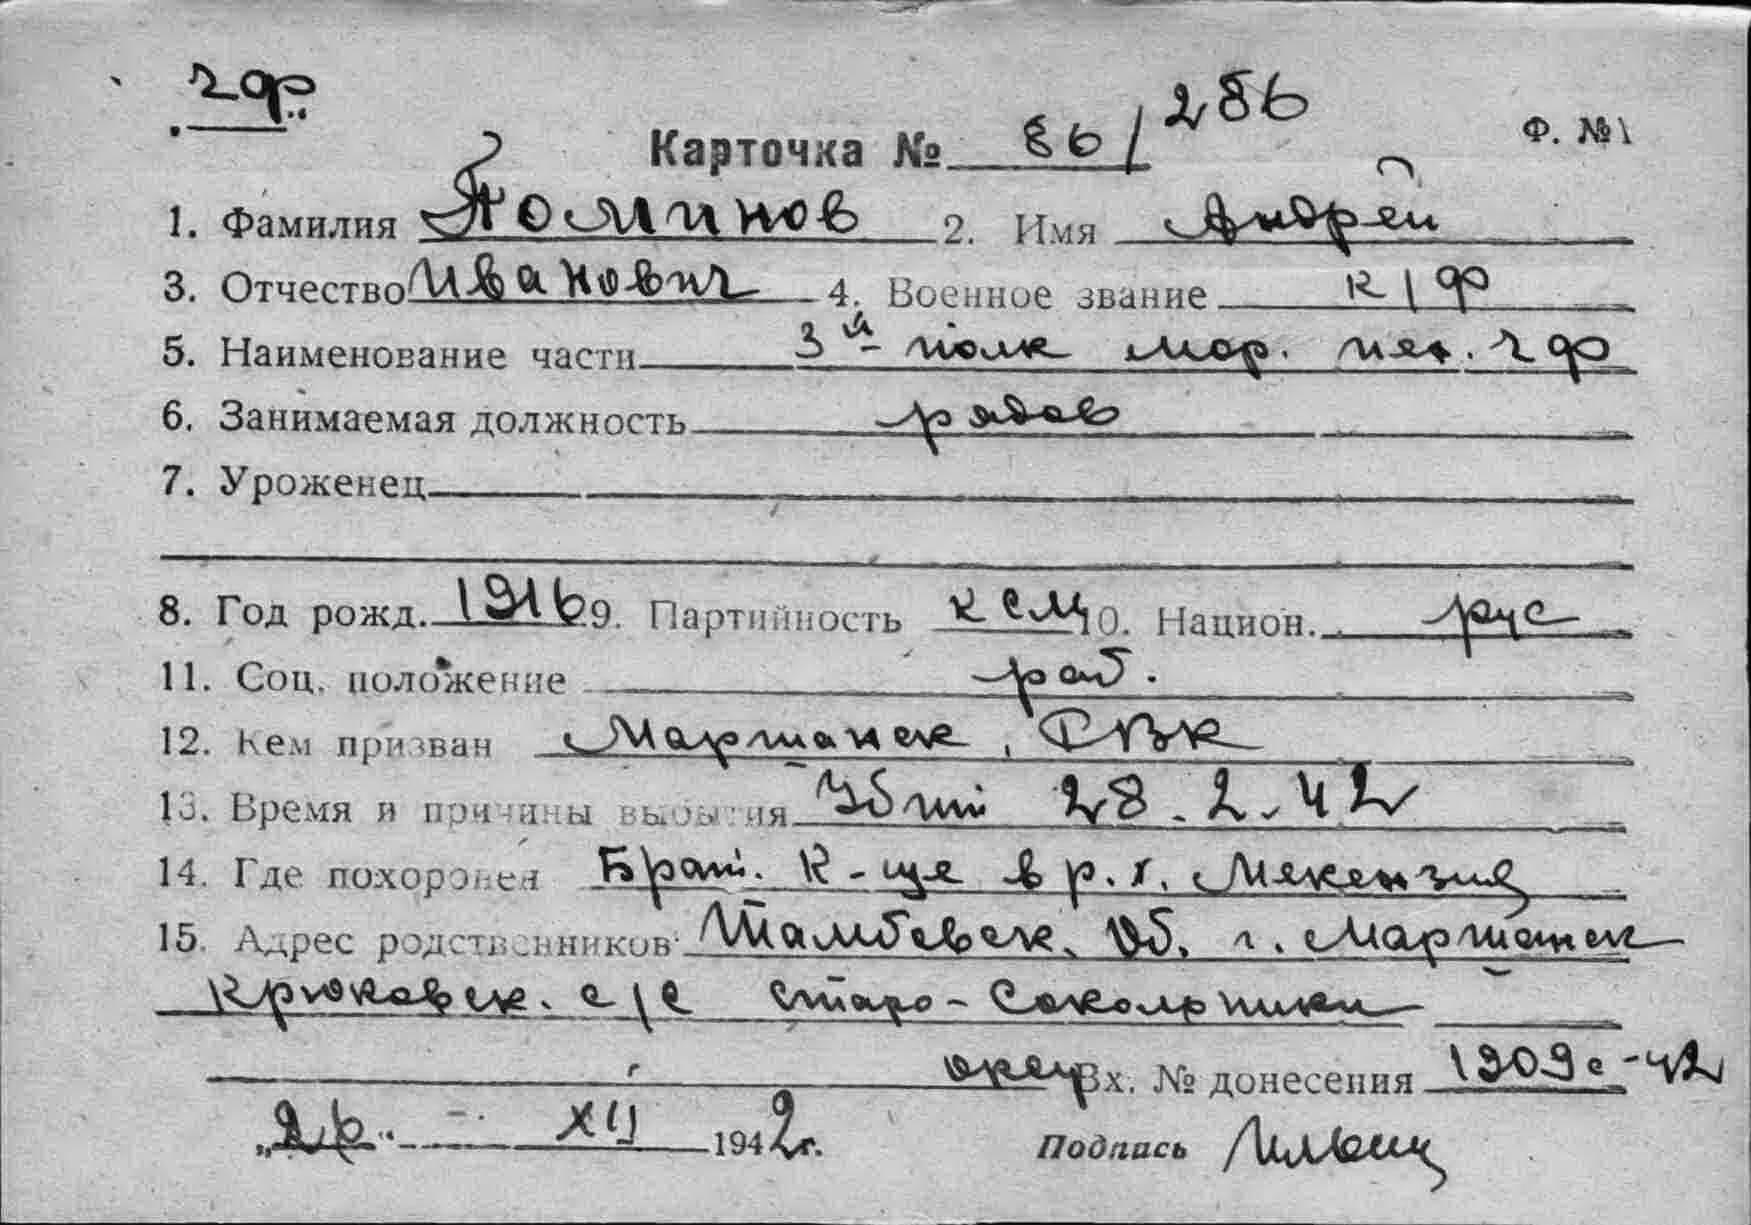 ЧФ
Карточка № 86/286 Ф. №1
1. Фамилия Поминов 2. Имя Андрей
3. Отчество Иванович 4. Военное звание к/ф
5. Наименование части 3й полк мор. пех. ЧФ
6. Занимаемая должность рядов
7. Уроженец
8. Год рожд. 1916 9. Партийность КСМ 10. Национ. рус
11. Соц. положение раб.
12. Кем призван Моршанск. РВК
13. Время и причины выбытия Убит 28.2.42
14. Где похоронен Брат. к-ще в р. х. Мекензия
15. Адрес родственников Тамбовск. Об. г. Моршанск
Крюковск. с/с Старо-Сокольники
Вх. № донесения 1909с-42
„26“ XII 1942г. Подпись